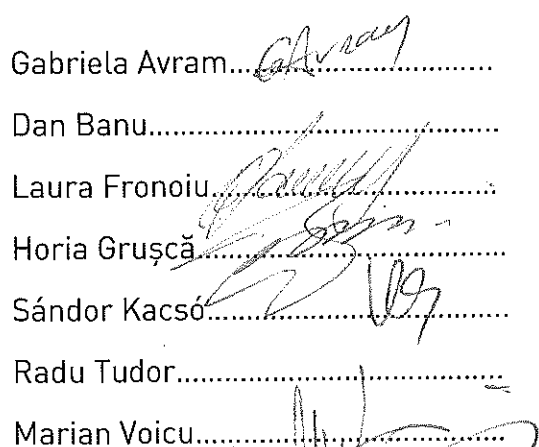 Gabriela Avram...GAvram...................
Dan Banu..................................................
Laura Fronoiu........................................
Horia Grușcă..........................................
Sándor Kacsó.........................................
Radu Tudor.............................................
Marian Voicu..........................................